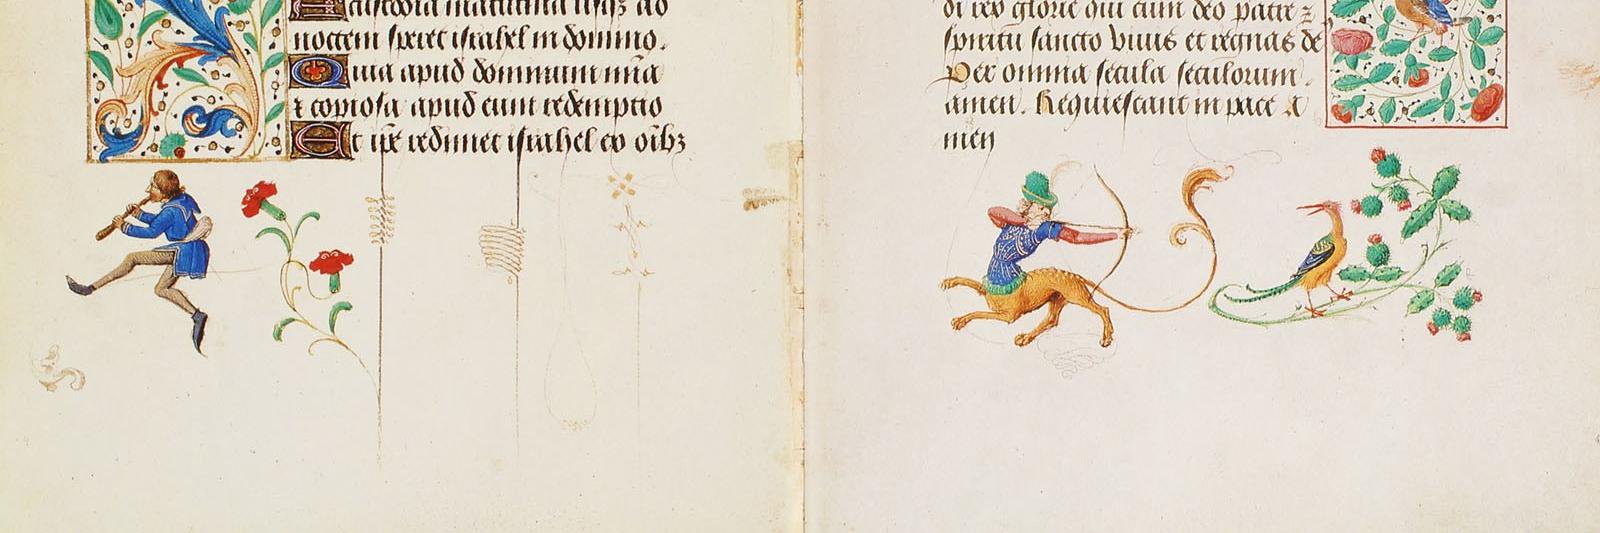 A custodia matutina usqz ad
noctem speret israhel in domino.
Quia apud dominum mīa
⁊ copiosa apud eum redemptio
Et ipē redimet israhel eo oībz
di rex glorie qui cum deo patre ⁊
spiritu sancto viuis et regnas de
Per omnia secula seculorum.
amen. Requiescant in pace A
men